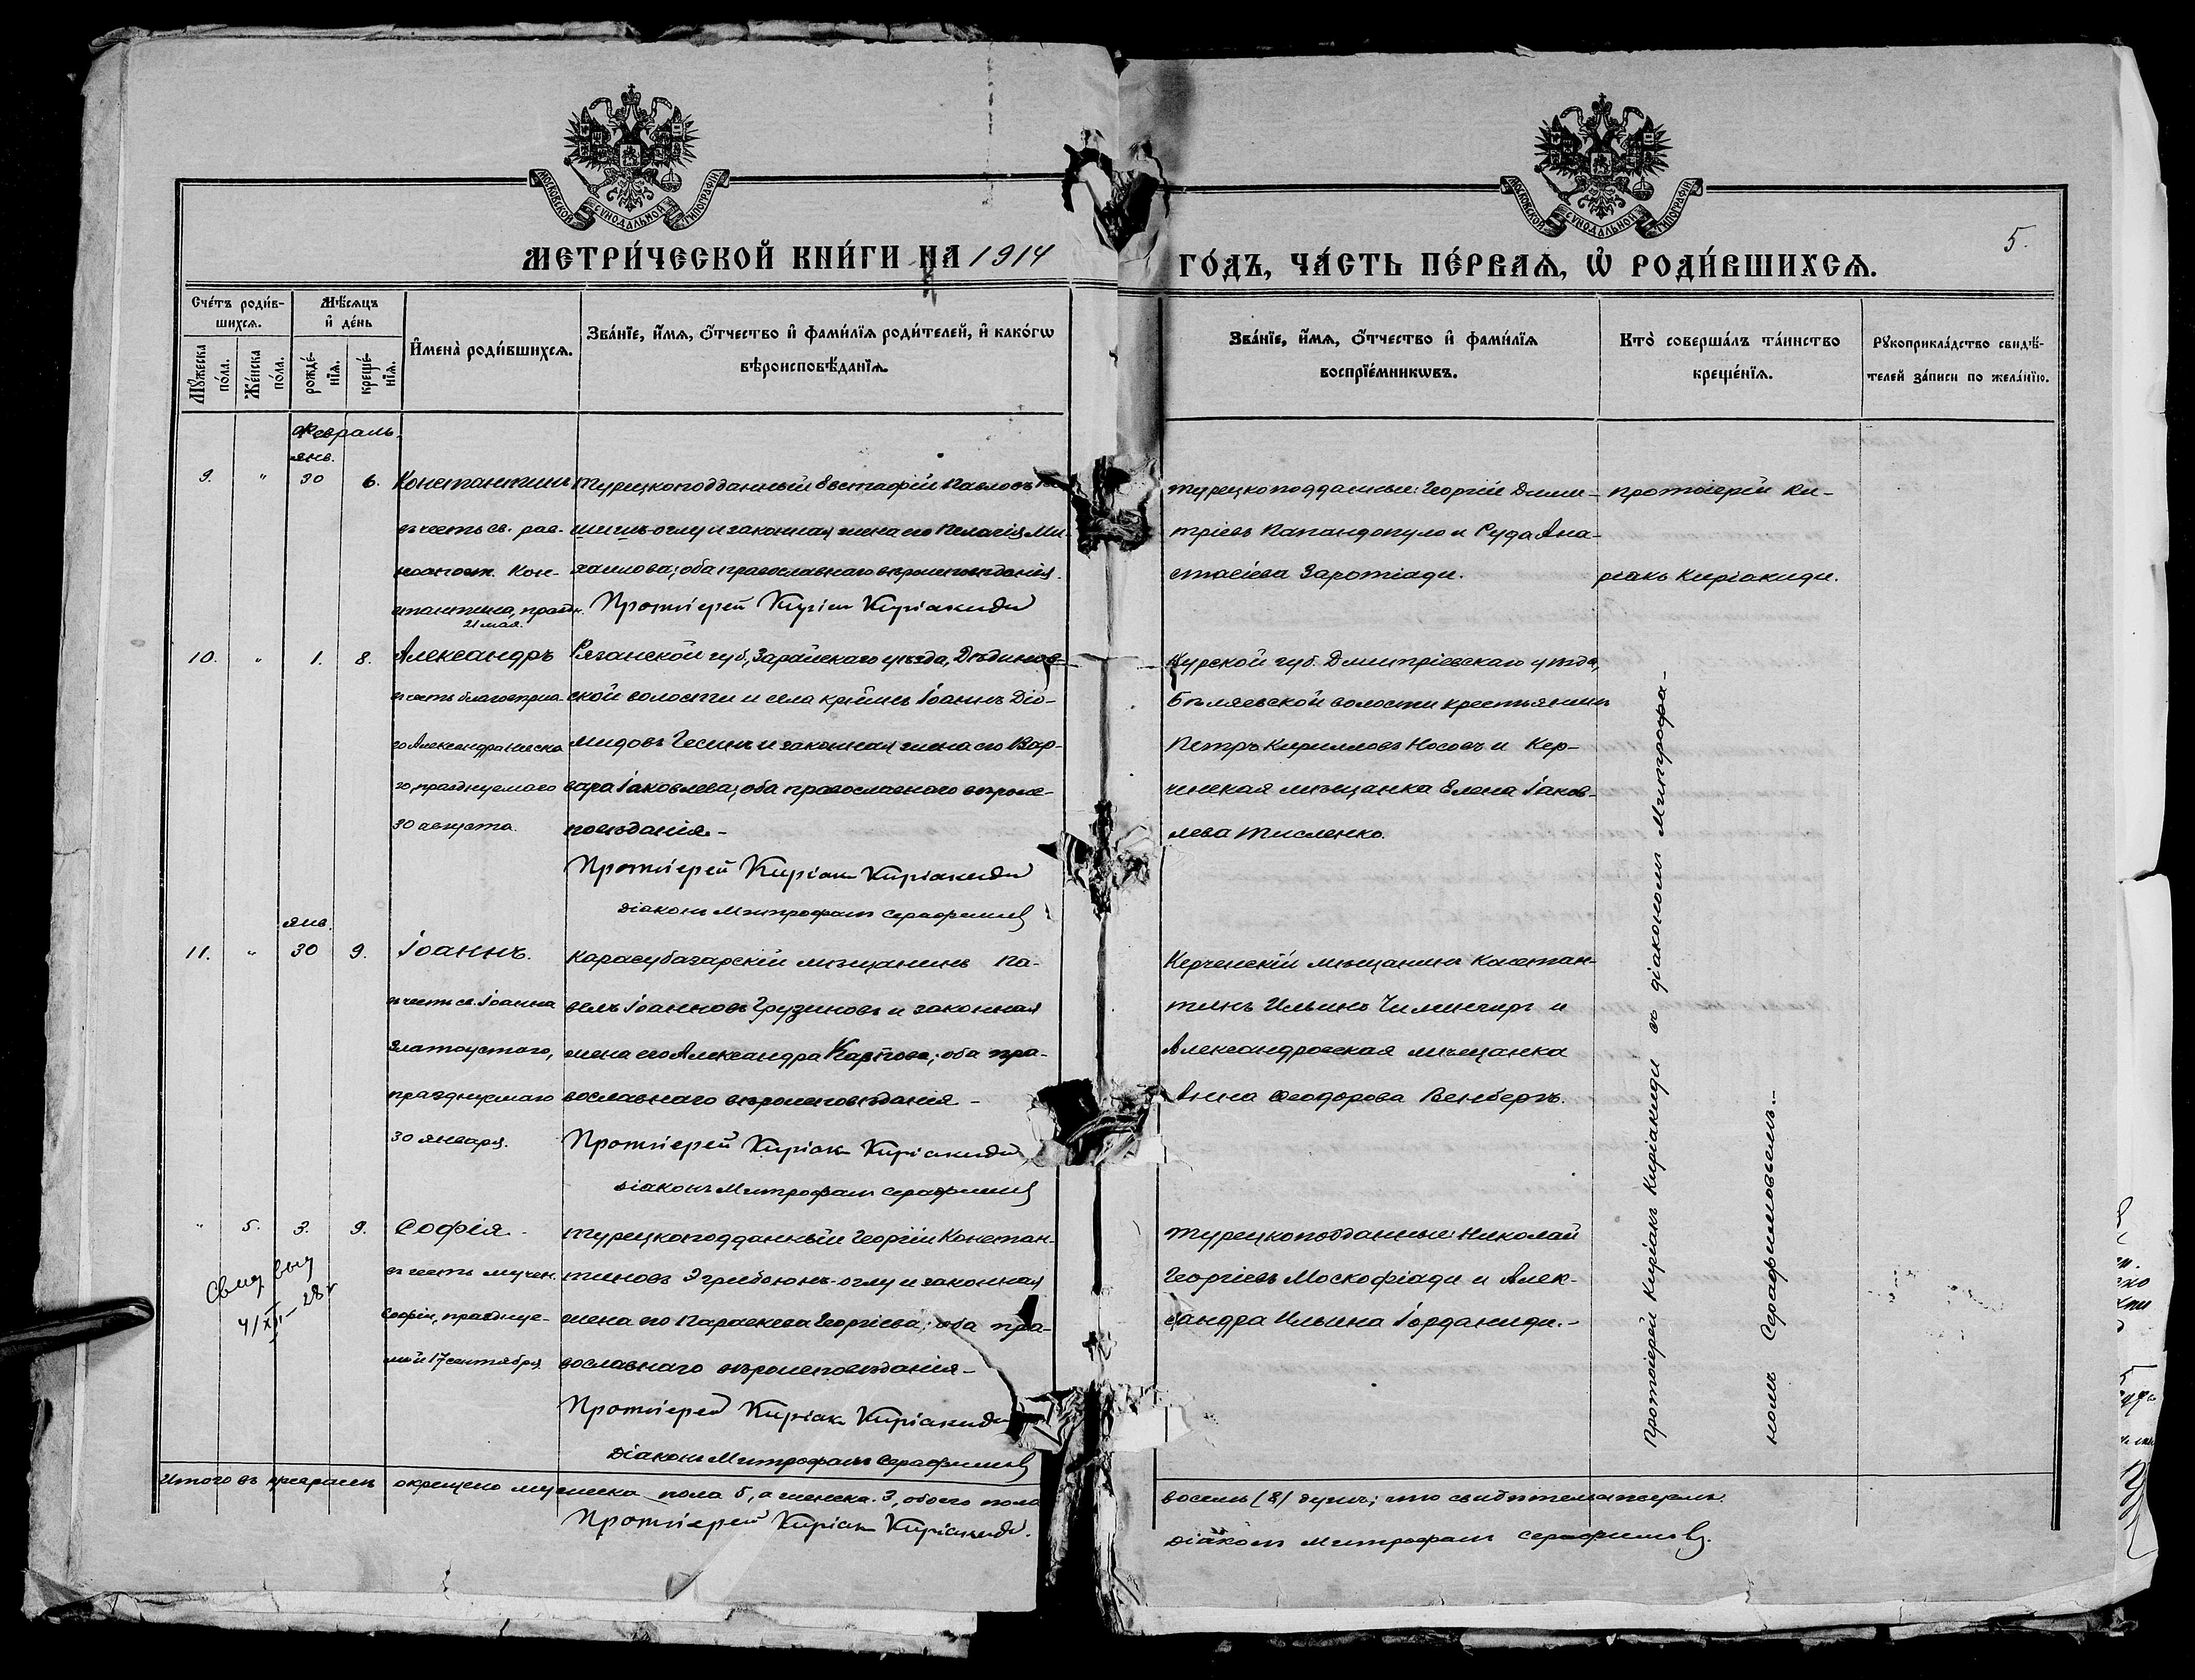 МОСКОВСКОЙ СѴНОДАЛЬНОЙ ТИПОГРАФІИ
МОСКОВСКОЙ СѴНОДАЛЬНОЙ ТИПОГРАФІИ
5.
МЕТРИ́ЧЕСКОЙ КНИ́ГИ НА 1914
ГО́ДЪ, ЧА́СТЬ ПЕ́РВАѦ, Ѡ҆ РОДИ́ВШИХСѦ.
Сче́тъ роди́в-
шихсѧ.
Мѣ́сѧцъ
и҆ де́нь
Мꙋ́жеска
по́ла.
Же́нска
по́ла.
рожде́-
нїѧ.
креще́-
нїѧ.
И҆мена̀ роди́вшихсѧ.
Зва́нїе, и҆́мѧ, ѻ҆́тчество и҆ фами́лїѧ роди́телей, и҆ како́гѡ
вѣроисповѣ́данїѧ.
Зва́нїе, и҆́мѧ, ѻ҆́тчество и҆ фами́лїѧ
воспрїе́мникѡвъ.
Кто̀ соверша́лъ та́инство
креще́нїѧ.
Рꙋкоприкла́дство свидѣ́-
телей за́писи по жела́нїю.
Февраль.
янв.
9. " 30 6. Константинъ
въ честь св. рав-
ноапост. Кон-
стантина, праздн.
21 мая.
турецкоподданный Евстафій Павловъ
шишъ-оглу и законная жена его Пелагія Ми-
хаилова; оба православнаго вѣроисповѣданія.
Протоіерей Киріакъ Киріакиди
турецкоподданные: Георгій Дими-
тріевъ Папандопуло и Суда Ана-
стасіева Заротіади.
протоіерей Ки-
ріакъ Киріакиди.
10. " 1. 8. Александръ
въ честь благовѣрна-
го Александра Невска
го, празднуемаго
30 августа.
Рязанской губ., Зарайскаго уѣзда, Дѣдинов-
ской волости и села кр-нинъ Іоаннъ Діо-
мидовъ Гесинъ и законная жена его Вар-
вара Іаковлева; оба православнаго вѣроис-
повѣданія.-
Протоіерей Киріакъ Киріакиди
діаконъ Митрофанъ Серафимовъ
Курской губ. Дмитріевскаго уѣзда,
Бѣляевской волости крестьянинъ
Петръ Кирилловъ Носовъ и Кер-
ченская мѣщанка Елена Іаков-
лева Тисленко.
янв.
11. " 30 9. Іоаннъ.
въ честь св. Іоанна
Златоустаго,
празднуемаго
30 января.
Карасубазарскій мѣщанинъ Па-
велъ Іоанновъ Грузиновъ и законная
жена его Александра Карпова; оба пра-
вославнаго вѣроисповѣданія -
Протоіерей Киріакъ Киріакиди
діаконъ Митрофанъ Серафимовъ
Керченскій мѣщанинъ Констан-
тинъ Ильинъ Чиминчиръ и
Александровская мѣщанка
Анна Феодорова Венберъ.
" 5. 3. 9. Софія.-
въ честь мучен.
Софіи, празднуе-
мой 17 сентября
Свид выд
4/XII-28 г
турецкоподданный Георгій Констан-
тиновъ Эгрибоюнъ-оглу и законная
жена его Параскева Георгіева; оба пра-
вославнаго вѣроисповѣданія-
Протоіерей Киріакъ Киріакиди
Діаконъ Митрофанъ Серафимовъ
турецкоподданные: Николай
Георгіевъ Москофіади и Алек-
сандра Ильина Іорданиди.-
протоіерей Киріакъ Киріакиди съ діакономъ Митрофа-
номъ Серафимовымъ.-
Итого въ февралѣ окрещено мужеска пола 5, а женска 3, обоего пола
восемь (8) душъ; что свидѣтельствуемъ.
Протоіерей Киріакъ Киріакиди.
діаконъ Митрофанъ Серафимовъ.